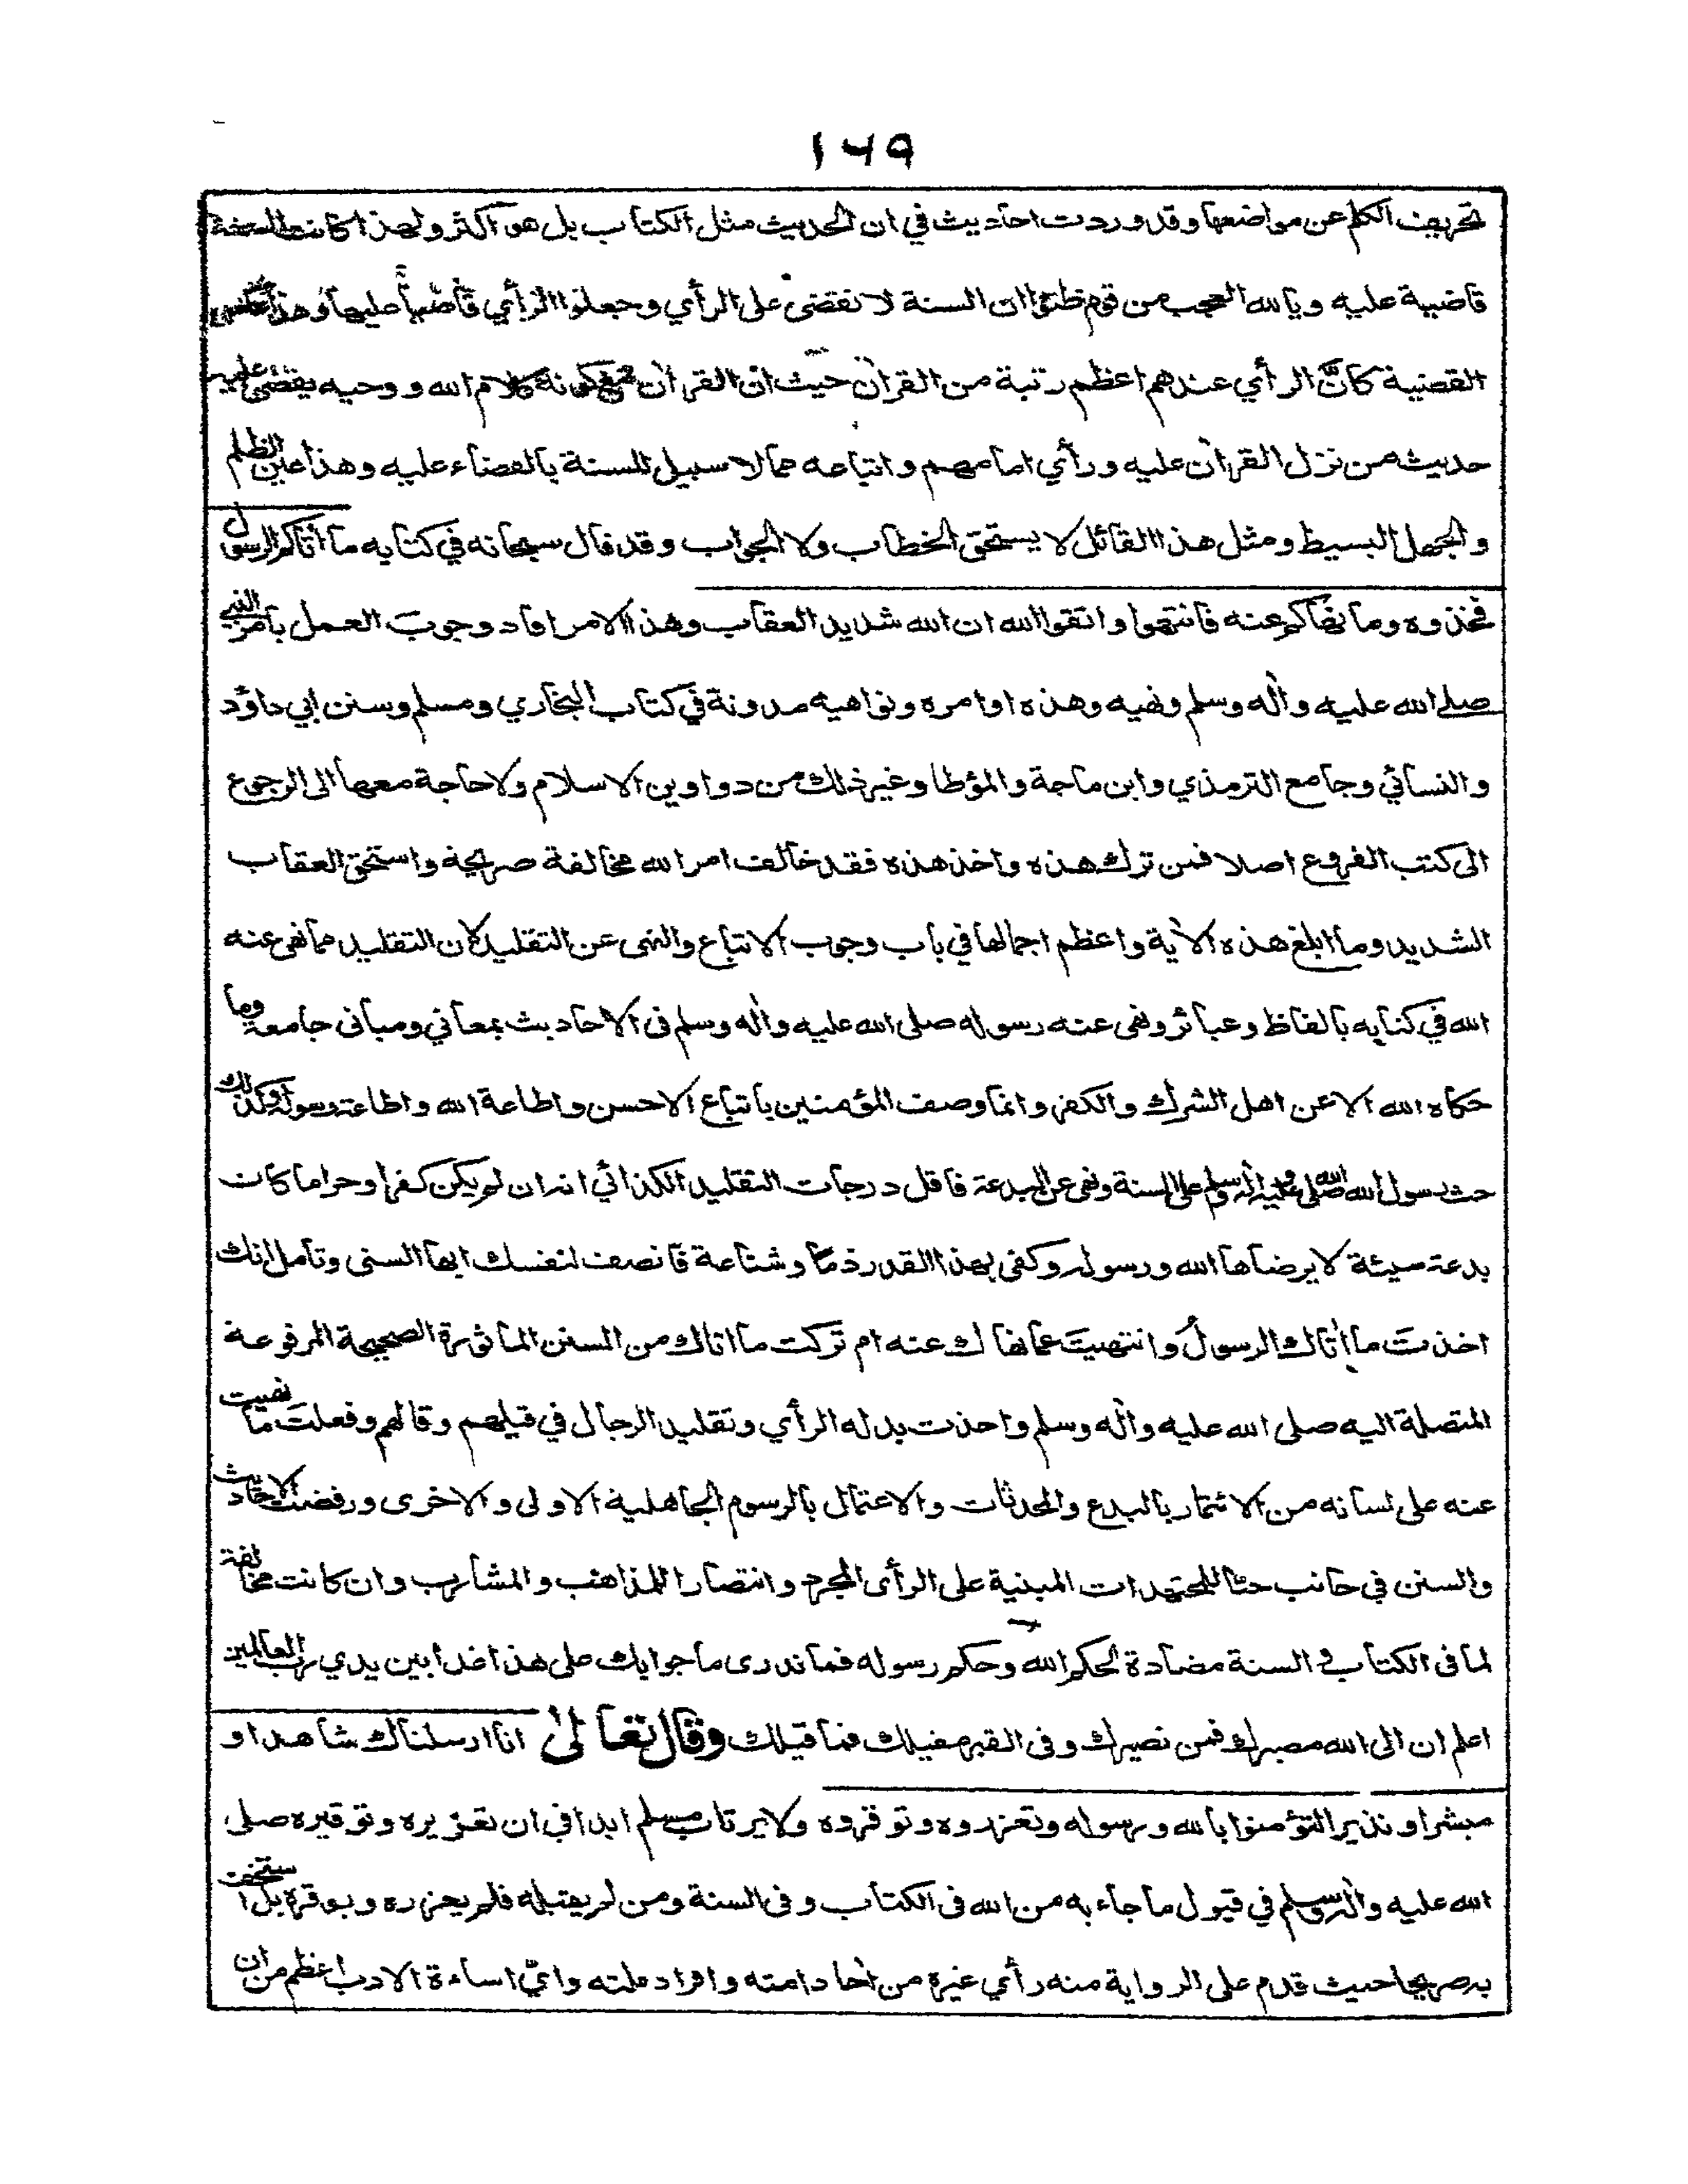 ١٦٩
تحريف الكلم عن مواضعها وقد وردت احاديث في ان الحديث مثل الكتاب بل هو اكثر ولهذا كانت السنة
قاضية عليه ويالله العجب من قوم ظنوا ان السنة لا تقضي على الرأي وجعلوا الرأي قاضيا عليها وهذا عكس
القضية كأنّ الرأي عندهم اعظم رتبة من القران حيث ان القرآن مع كونه كلام الله ووحيه يقضى عليه
حديث من نزل القرآن عليه ورأي امامهم واتباعه مما لا سبيل للسنة بالقضاء عليه وهذا عين الظلم
والجهل البسيط ومثل هذا القائل لا يستحق الخطاب ولا الجواب وقد قال سبحانه في كتابه ما أتاكم الرسول
فخذوه وما نهاكم عنه فانتهوا واتقوا الله ان الله شديد العقاب وهذا الامر افاد وجوب العمل بامر النبي
صلى الله عليه وآله وسلم ونهيه وهذه اوامره ونواهيه مدونة في كتاب البخاري ومسلم وسنن ابي داؤد
والنسائي وجامع الترمذي وابن ماجة والمؤطا وغير ذلك من دواوين الاسلام ولا حاجة معها الى الرجوع
الى كتب الفروع اصلا فمن ترك هذه واخذ هذه فقد خالف امر الله مخالفة صريحة واستحق العقاب
الشديد وما ابلغ هذه الآية واعظم اجمالها في باب وجوب الاتباع والنهى عن التقليد لان التقليد مما نهى عنه
الله في كتابه بالفاظ وعبائر ونهى عنه رسوله صلى الله عليه وآله وسلم فى الاحاديث بمعاني ومبانى جامعة وما
حكاه الله الا عن اهل الشرك والكفر وانما وصف المؤمنين باتباع الاحسن واطاعة الله واطاعة رسوله وكذلك
حث رسول الله صلى الله عليه وآله وسلم على السنة ونهى عن البدعة فاقل درجات التقليد الكذائي انه ان لم يكن كفرا وحراما كان
بدعة سيئة لا يرضاها الله ورسوله وكفى بهذا القدر ذما وشناعة فانصف لنفسك ايها السنى وتأمل انك
اخذتَ ما اٰتاك الرسولُ وانتهيتَ عما نهاك عنه ام تركت ما اتاك من السنن المأثورة الصحيحة المرفوعة
المتصلة اليه صلى الله عليه وآله وسلم واخذت بدله الرأي وتقليد الرجال في قيلهم وقالهم وفعلتَ ما نهيت
عنه على لسانه من الائتمار بالبدع والمحدثات والاعتمال بالرسوم الجاهلية الاولى والاخرى ورفضت الاحاديث
والسنن في جانب حثا للمجتهدات المبنية على الرأى المجرد وانتصارا للمذاهب والمشارب وان كانت مخالفة
لما فى الكتاب و السنة مضادة لحكم الله وحكم رسوله فما ندرى ما جوابك على هذا غدا بين يدي رب العالمين
اعلم ان الى الله مصيرك فمن نصيرك وفى القبر مقيلك فما قيلك وقال تعالىٰ انا ارسلناك شاهدا و
مبشرا ونذيرا لتؤمنوا بالله ورسوله وتعزروه وتوقروه ولا يرتاب مسلم ابدا في ان تعزيره وتوقيره صلى
الله عليه وآله وسلم في قبول ما جاء به من الله فى الكتاب وفى السنة ومن لم يقبله فلم يعزره ويوقره بل استخف
به صريحا حيث قدم على الرواية منه رأي غيره من اٰحاد امته وافراد ملته وايّ اساءة الادب اعظم من ان